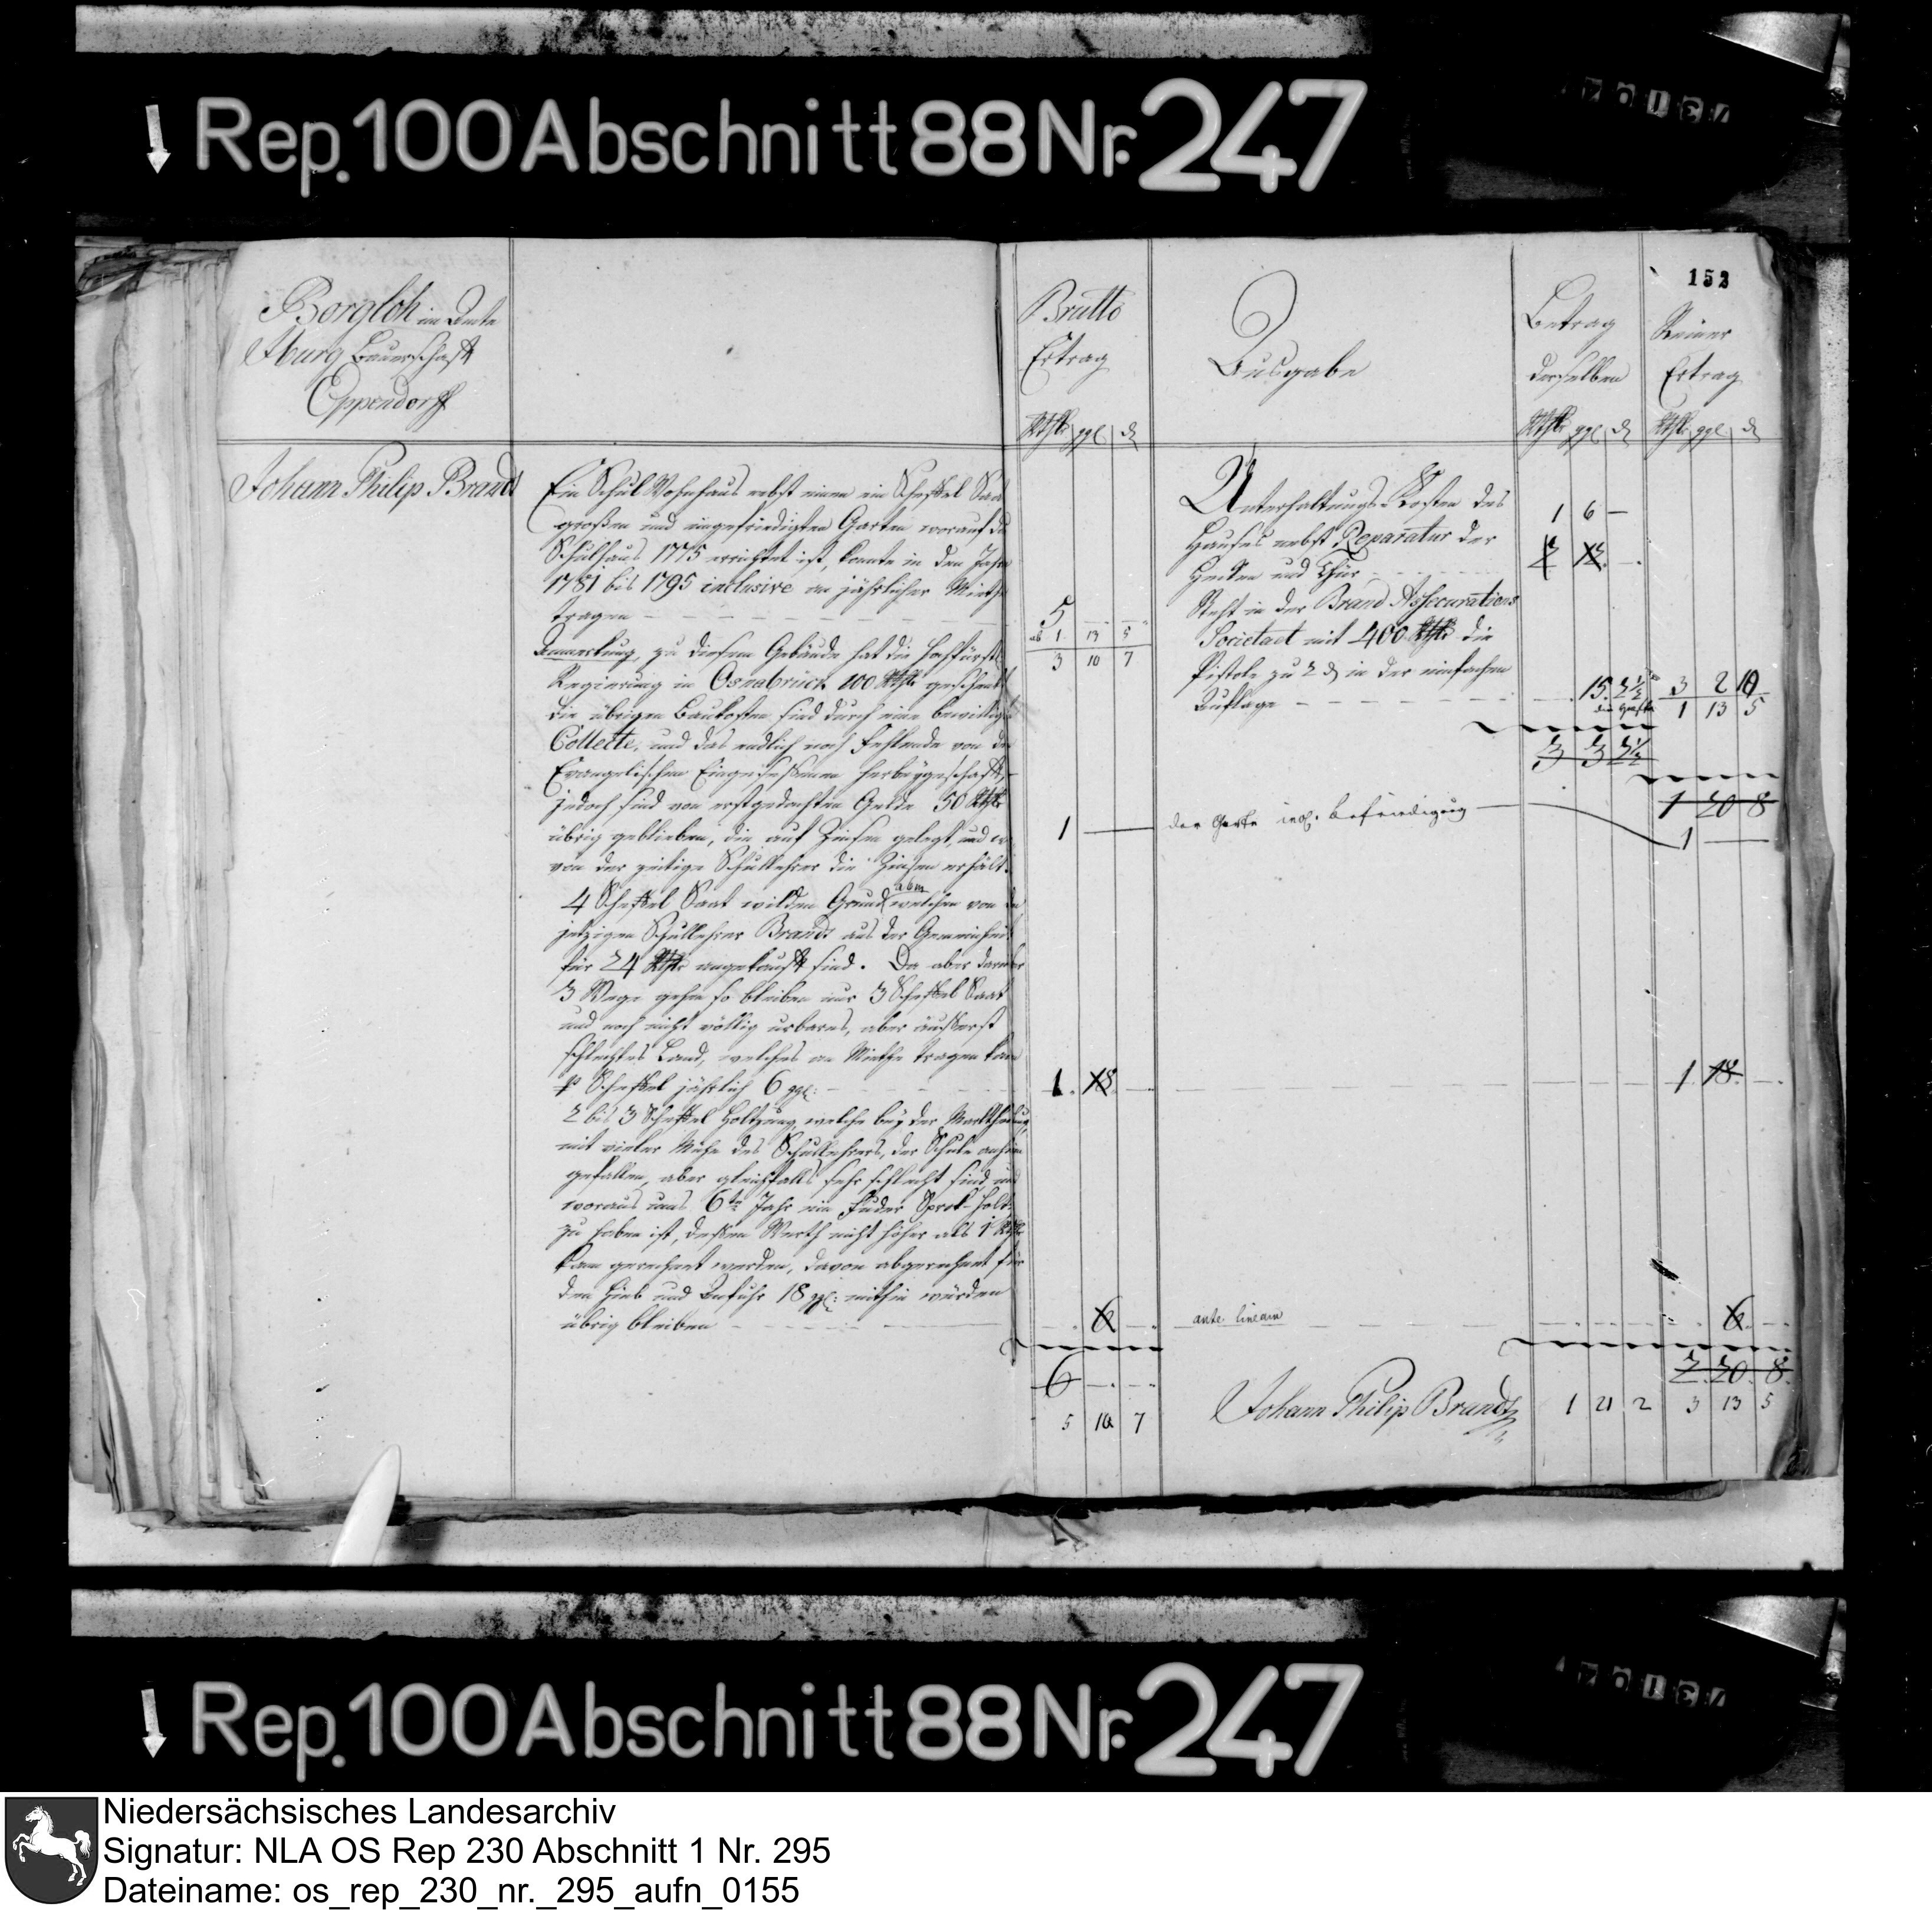 Rep. 100 Abschnitt 88 Nr. 247
152
Borgloh im Amte
Iburg Bauerschaft
Eppendorff
Brutto
Ertrag
Rthlr ggl d
Ausgabe
Betrag
derselben
Rthlr ggl d
Reiner
Ertrag
Rthlr ggl d
Johann Philip Brandt
Ein Schul Wohnhaus nebst einen ein Scheffel Saat
großen und eingefriedigten Garten worauf das
Schulhaus 1775 errichtet ist, konnte in den Jahren
1781 bis 1795 inclusive an jährlicher Miethe
tragen
Anmerkung, zu diesem Gebäude hat die Hochfürstl
Regierung in Osnabrück 100 Rthlr geschenkt
die übrigen Baukosten sind durch eine bewilligte
Collecte, und das endlich noch Fehlende von den
Evangelischen Eingesessenen herbeygeschafft,
jedoch sind von erstgedachten Gelde 50 Rthlr
übrig geblieben, die auf Zinsen gelegt, und
von der zeitige Schullehrer die Zinsen erhält.
4 Scheffel Saat wilden Grund welchen von den
jetzigen Schullehrer Brandt aus der Gemeinheit
für 24 Rthlr angekauft sind. Da aber darüber
3 Wege gehen so bleiben nur 3 Scheffel Saat
und noch nicht völlig urbares, aber äusserst
schlechtes Land, welches an Miethe tragen kan
Scheffel jährlich 6 ggl:
2 bis 3 Scheffel Holtzung, welche bey der Marktheilung,
mit vieler Mühe des Schullehrers, der Schule anheim
gefallen, aber gleichfalls sehr schlecht sind und
woraus ums 6te Jahr ein Fuder Holz
zu haben ist, dessen Werth nicht höher als 1 Rthlr
kan gerechnet werden, davon abgerechnet für
den Hieb und Anfuhr 18 ggl: mithin würden
übrig bleiben
5
ab 1 13 5
3 10 7
1
1. 18
6
6
5 10 7
Unterhaltungs Kosten des
Hauses nebst Reparatur der
Hecken und Thür
Steht in der Brand Assecurations
Societaet mit 400 Rthlr die
Pistole zu 2 d in der einfachen
Auflage
der Garte incl. Befriedigung
ante lineam
Johann Philip Brandt
1 6
15. 2½
die Hälfte
3 3 2½
1 21 2
3 2 10
1 13 5
1 20 8
1
1. 18.
6
2 20 8
3 13 5
Rep. 100 Abschnitt 88 Nr. 247
Niedersächsisches Landesarchiv
Signatur: NLA OS Rep 230 Abschnitt 1 Nr. 295
Dateiname: os_rep_230_nr._295_aufn_0155